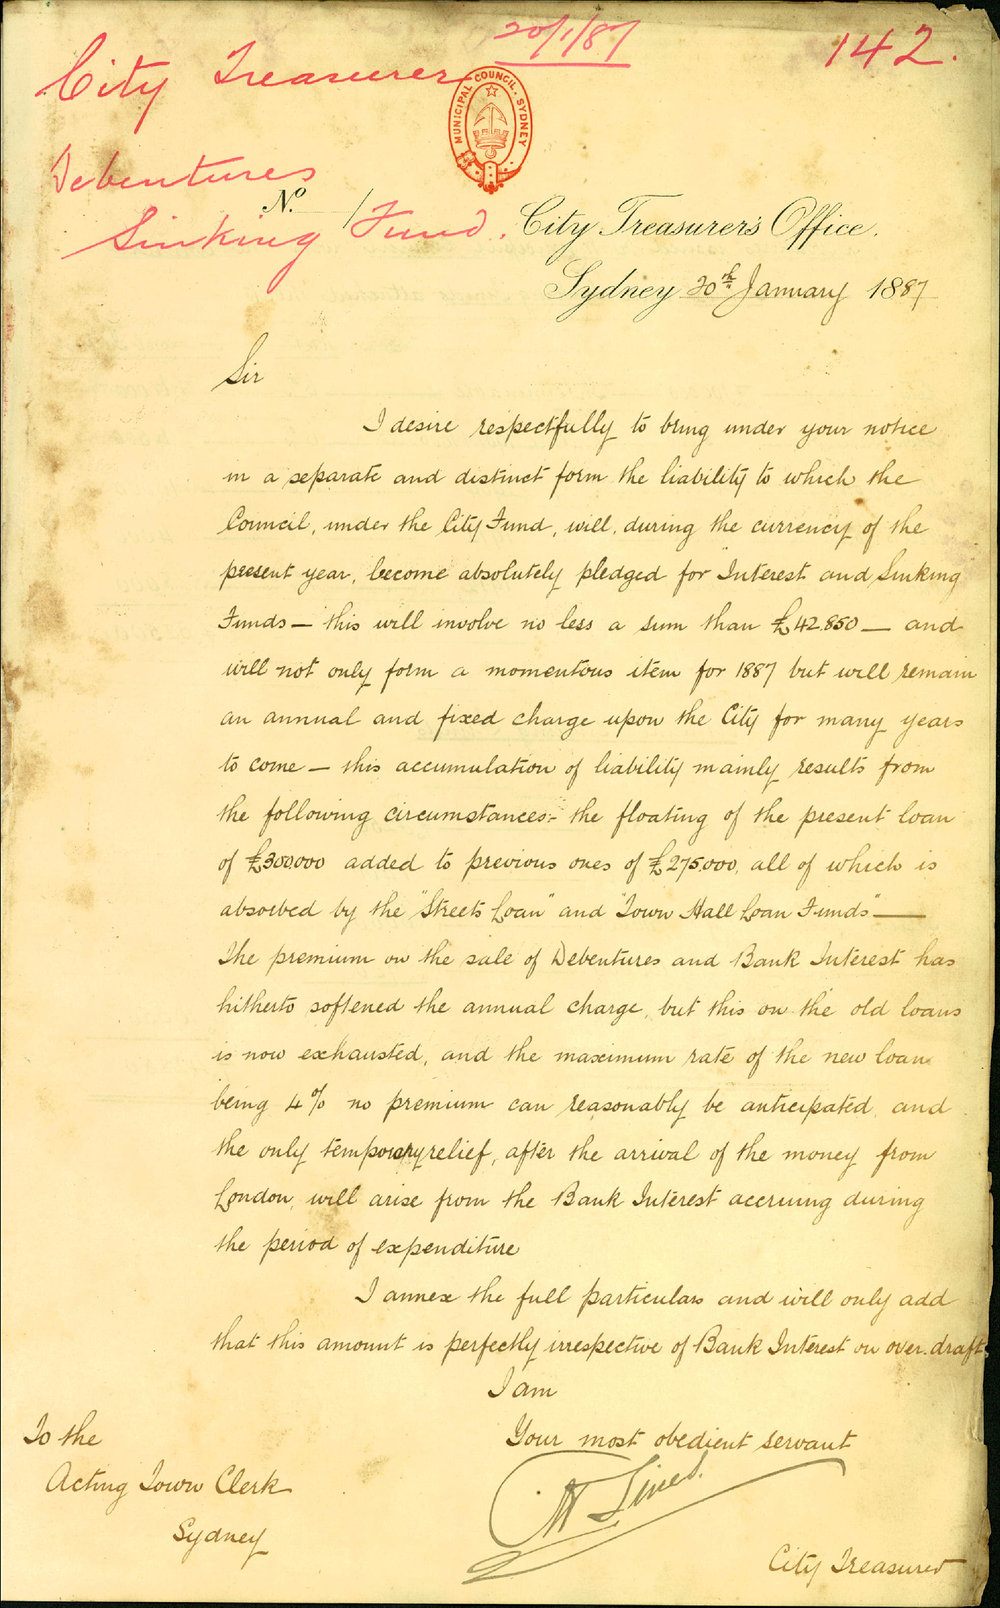 20/1/87
142.
City Treasurer
MUNICIPAL COUNCIL. SYDNEY
Debentures
Sinking Fund.
No. /
City Treasurer's Office.
Sydney 20th January 1887
Sir
I desire respectfully to bring under your notice
in a separate and distinct form the liability to which the
Council, under the City Fund, will, during the currency of the
present year, become absolutely pledged for Interest and Sinking
Funds — this will involve no less a sum than £42.850 — and
will not only form a momentous item for 1887 but will remain
an annual and fixed charge upon the City for many years
to come — this accumulation of liability mainly results from
the following circumstances:- the floating of the present loan
of £300.000 added to previous ones of £275.000, all of which is
absorbed by the "Streets Loan" and "Town Hall Loan Funds" —
The premium on the sale of Debentures and Bank Interest has
hitherto softened the annual charge, but this on the old loans
is now exhausted, and the maximum rate of the new loan
being 4% no premium can reasonably be anticipated, and
the only temporary relief, after the arrival of the money from
London, will arise from the Bank Interest accruing during
the period of expenditure
I annex the full particulars and will only add
that this amount is perfectly irrespective of Bank Interest on over-draft.
I am
Your most obedient servant
To the
Acting Town Clerk
Sydney
City Treasurer